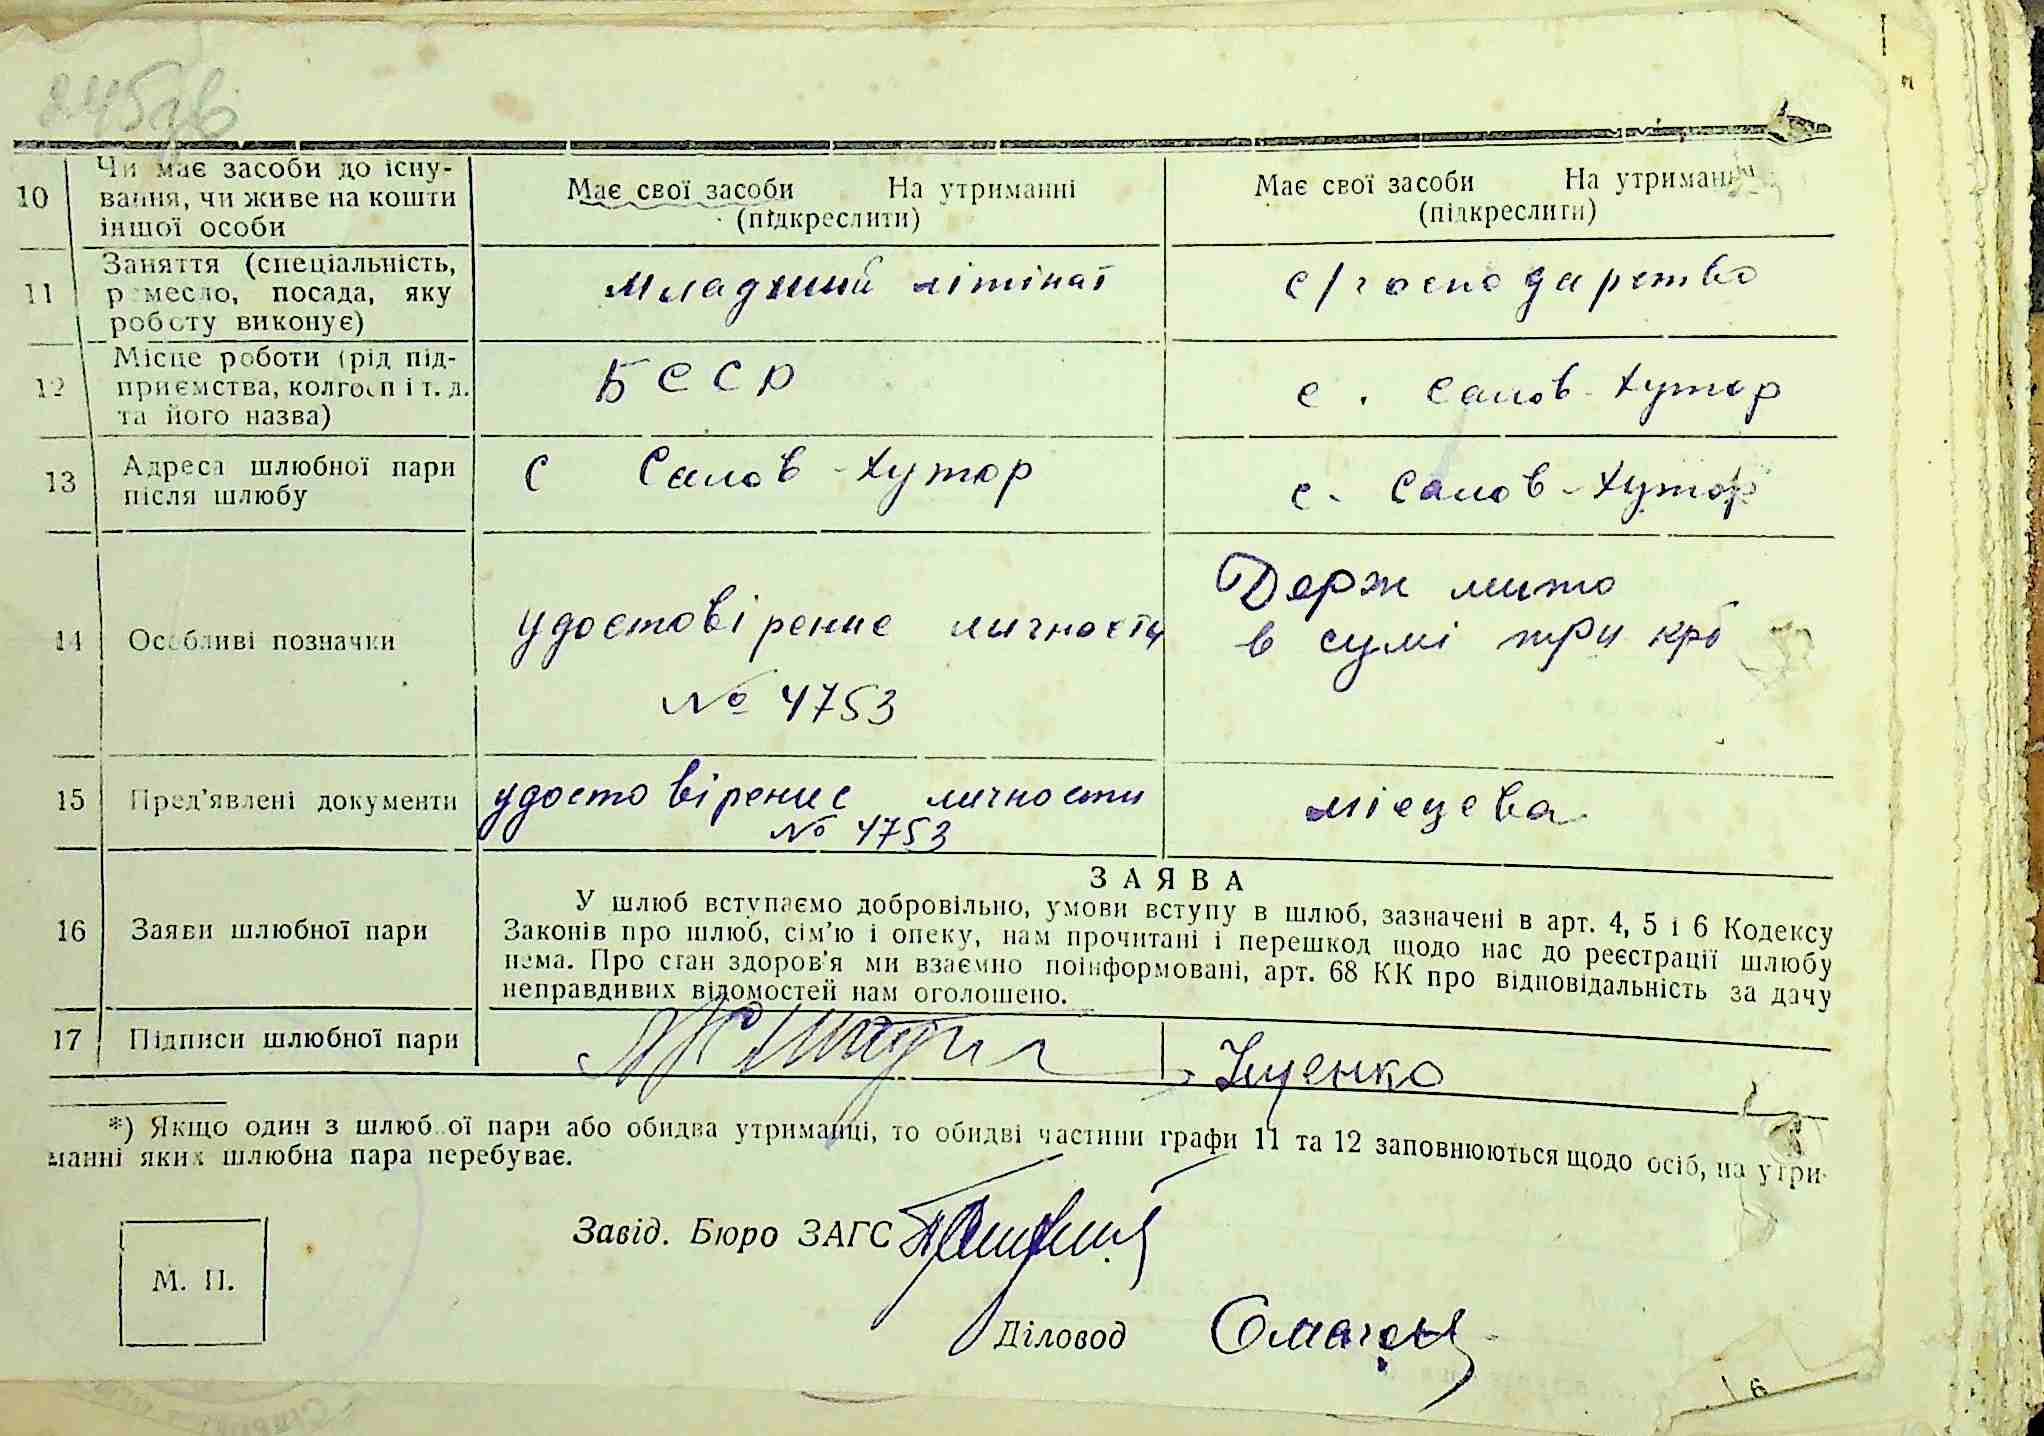 245зв
10 Чи має засоби до існу-
вання, чи живе на кошти
іншої особи
Має свої засоби На утриманні
(підкреслити)
Має свої засоби На утриманні
(підкреслити)
11 Заняття (спеціальність,
ремесло, посада, яку
роботу виконує)
младший літінат
с/господарство
12 Місце роботи (рід під-
приємства, колгосп і т. д.
та його назва)
БССР
с. Салов-Хутор
13 Адреса шлюбної пари
після шлюбу
с Салов-Хутор
с. Салов-Хутор
14 Особливі позначки
удостовірение личности
№ 4753
Держ мито
в сумі три крб
15 Пред'явлені документи
удостовірение личности
№ 4753
місцева
16 Заяви шлюбної пари
ЗАЯВА
У шлюб вступаємо добровільно, умови вступу в шлюб, зазначені в арт. 4, 5 і 6 Кодексу
Законів про шлюб, сім'ю і опеку, нам прочитані і перешкод щодо нас до реєстрації шлюбу
нема. Про стан здоров'я ми взаємно поінформовані, арт. 68 КК про відповідальність за дачу
неправдивих відомостей нам оголошено.
17 Підписи шлюбної пари
Іщенко
*) Якщо один з шлюбної пари або обидва утриманці, то обидві частини графи 11 та 12 заповнюються щодо осіб, на утри-
манні яких шлюбна пара перебуває.
Завід. Бюро ЗАГС
М. П.
Діловод
6